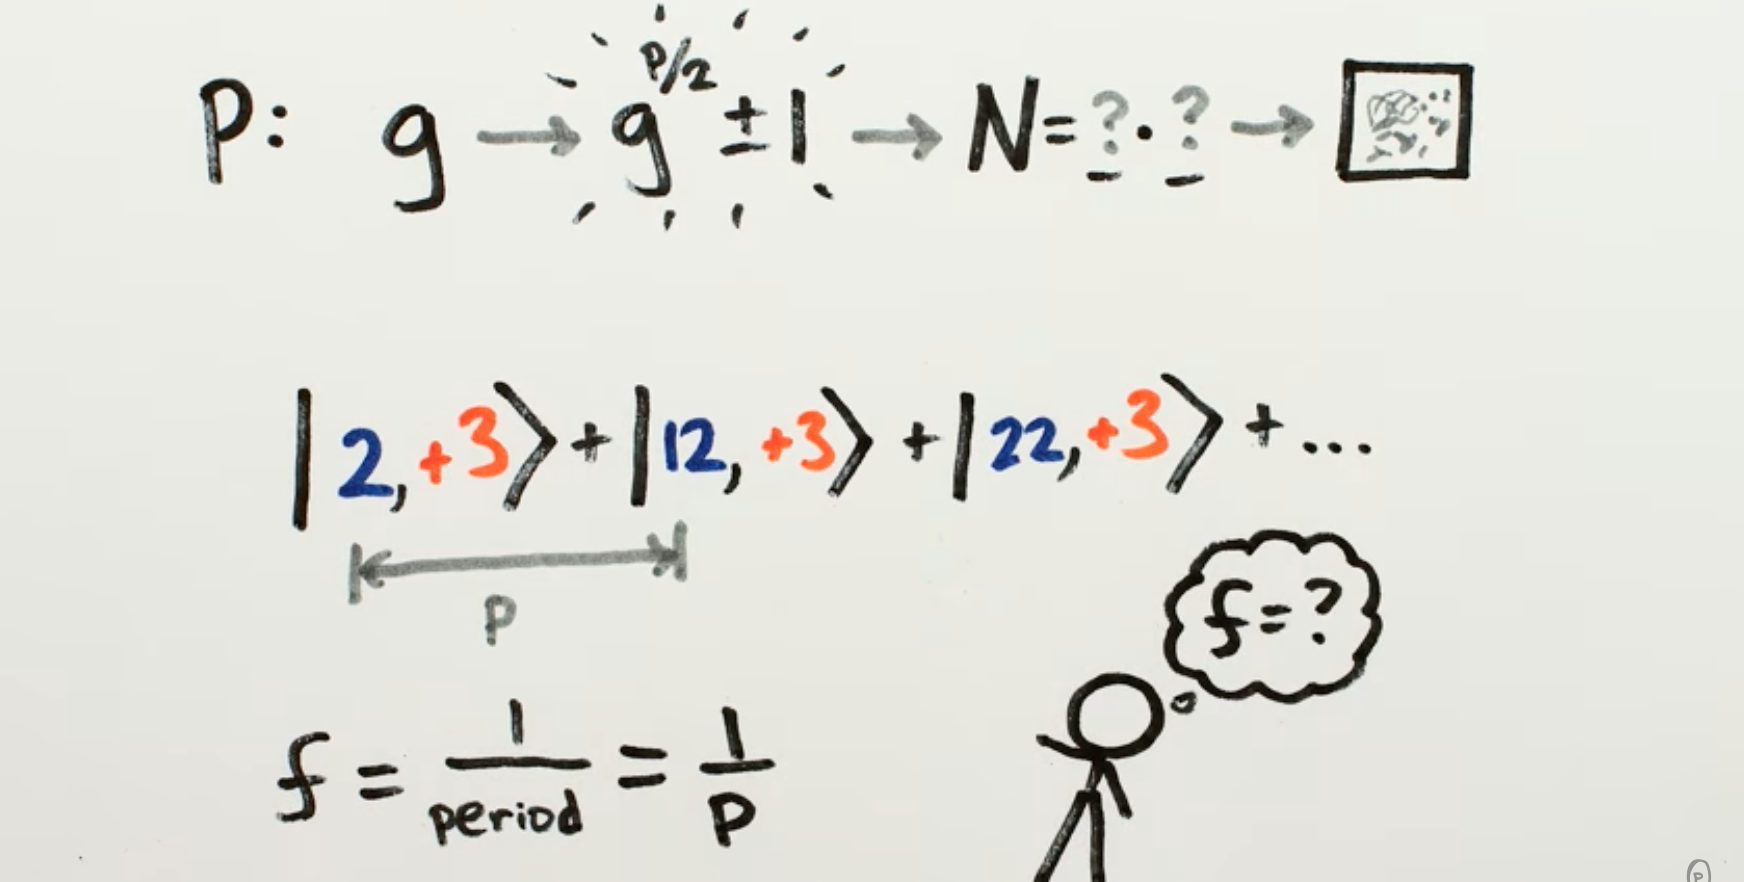 P: g → g^(P/2) ± 1 → N = ? · ? →
|2, +3⟩ + |12, +3⟩ + |22, +3⟩ + ...
P
f = ?
f = 1/period = 1/P
P